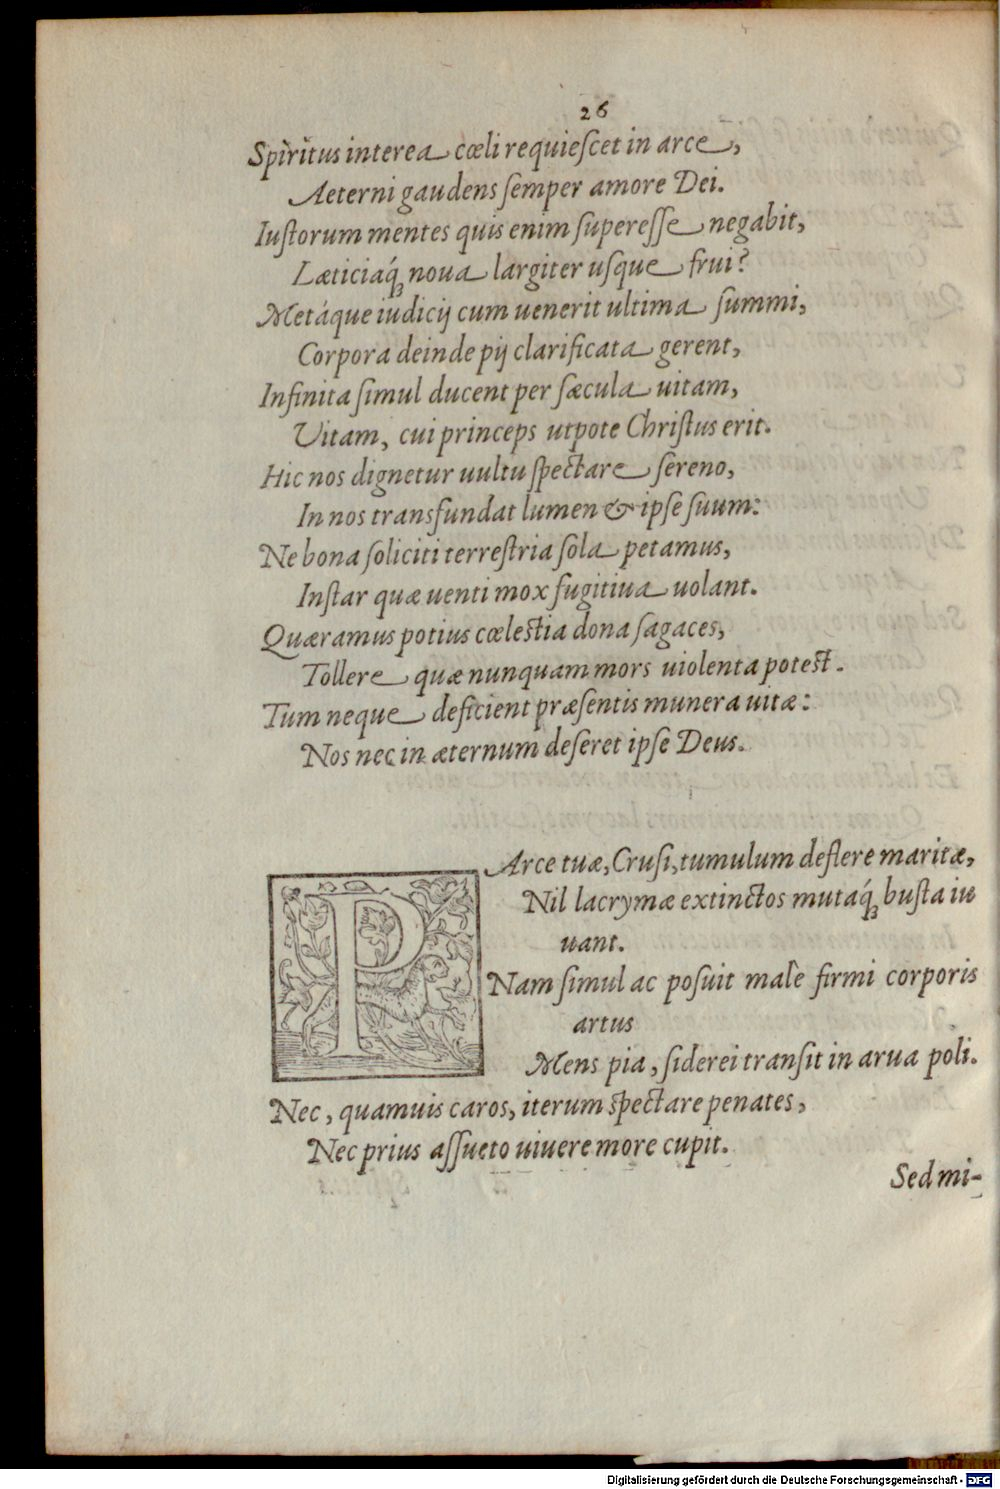 26
Spiritus interea cœli requieſcet in arce,
Aeterni gaudens ſemper amore Dei.
Iuſtorum mentes quis enim ſupereſſe negabit,
Lætitiaq́ꝫ noua largiter uſque frui?
Metáque iudicij cum uenerit ultima summi,
Corpora deinde pij clarificata gerent,
Infinita ſimul ducent per ſæcula uitam,
Vitam, cui princeps utpote Chriſtus erit.
Hic nos dignetur uultu ſpectare ſereno,
In nos transfundat lumen & ipſe ſuum:
Ne bona ſoliciti terreſtria ſola petamus,
Inſtar quæ uenti mox fugitiua uolant.
Quæramus potius cœleſtia dona ſagaces,
Tollere quæ nunquam mors uiolenta poteſt.
Tum neque deficient præſentis munera uitæ:
Nos nec in æternum deſeret ipſe Deus.
PArce tuæ, Cruſi, tumulum deflere maritæ,
Nil lacrymæ extinctos mutaq́ꝫ buſta iu
uant.
Nam ſimul ac poſuit malè firmi corporis
artus
Mens pia, ſiderei tranſit in arua poli.
Nec, quamuis caros, iterum ſpectare penates,
Nec prius aſſueto uiuere more cupit.
Sed mi-
Digitalisierung gefördert durch die Deutsche Forschungsgemeinschaft - DFG